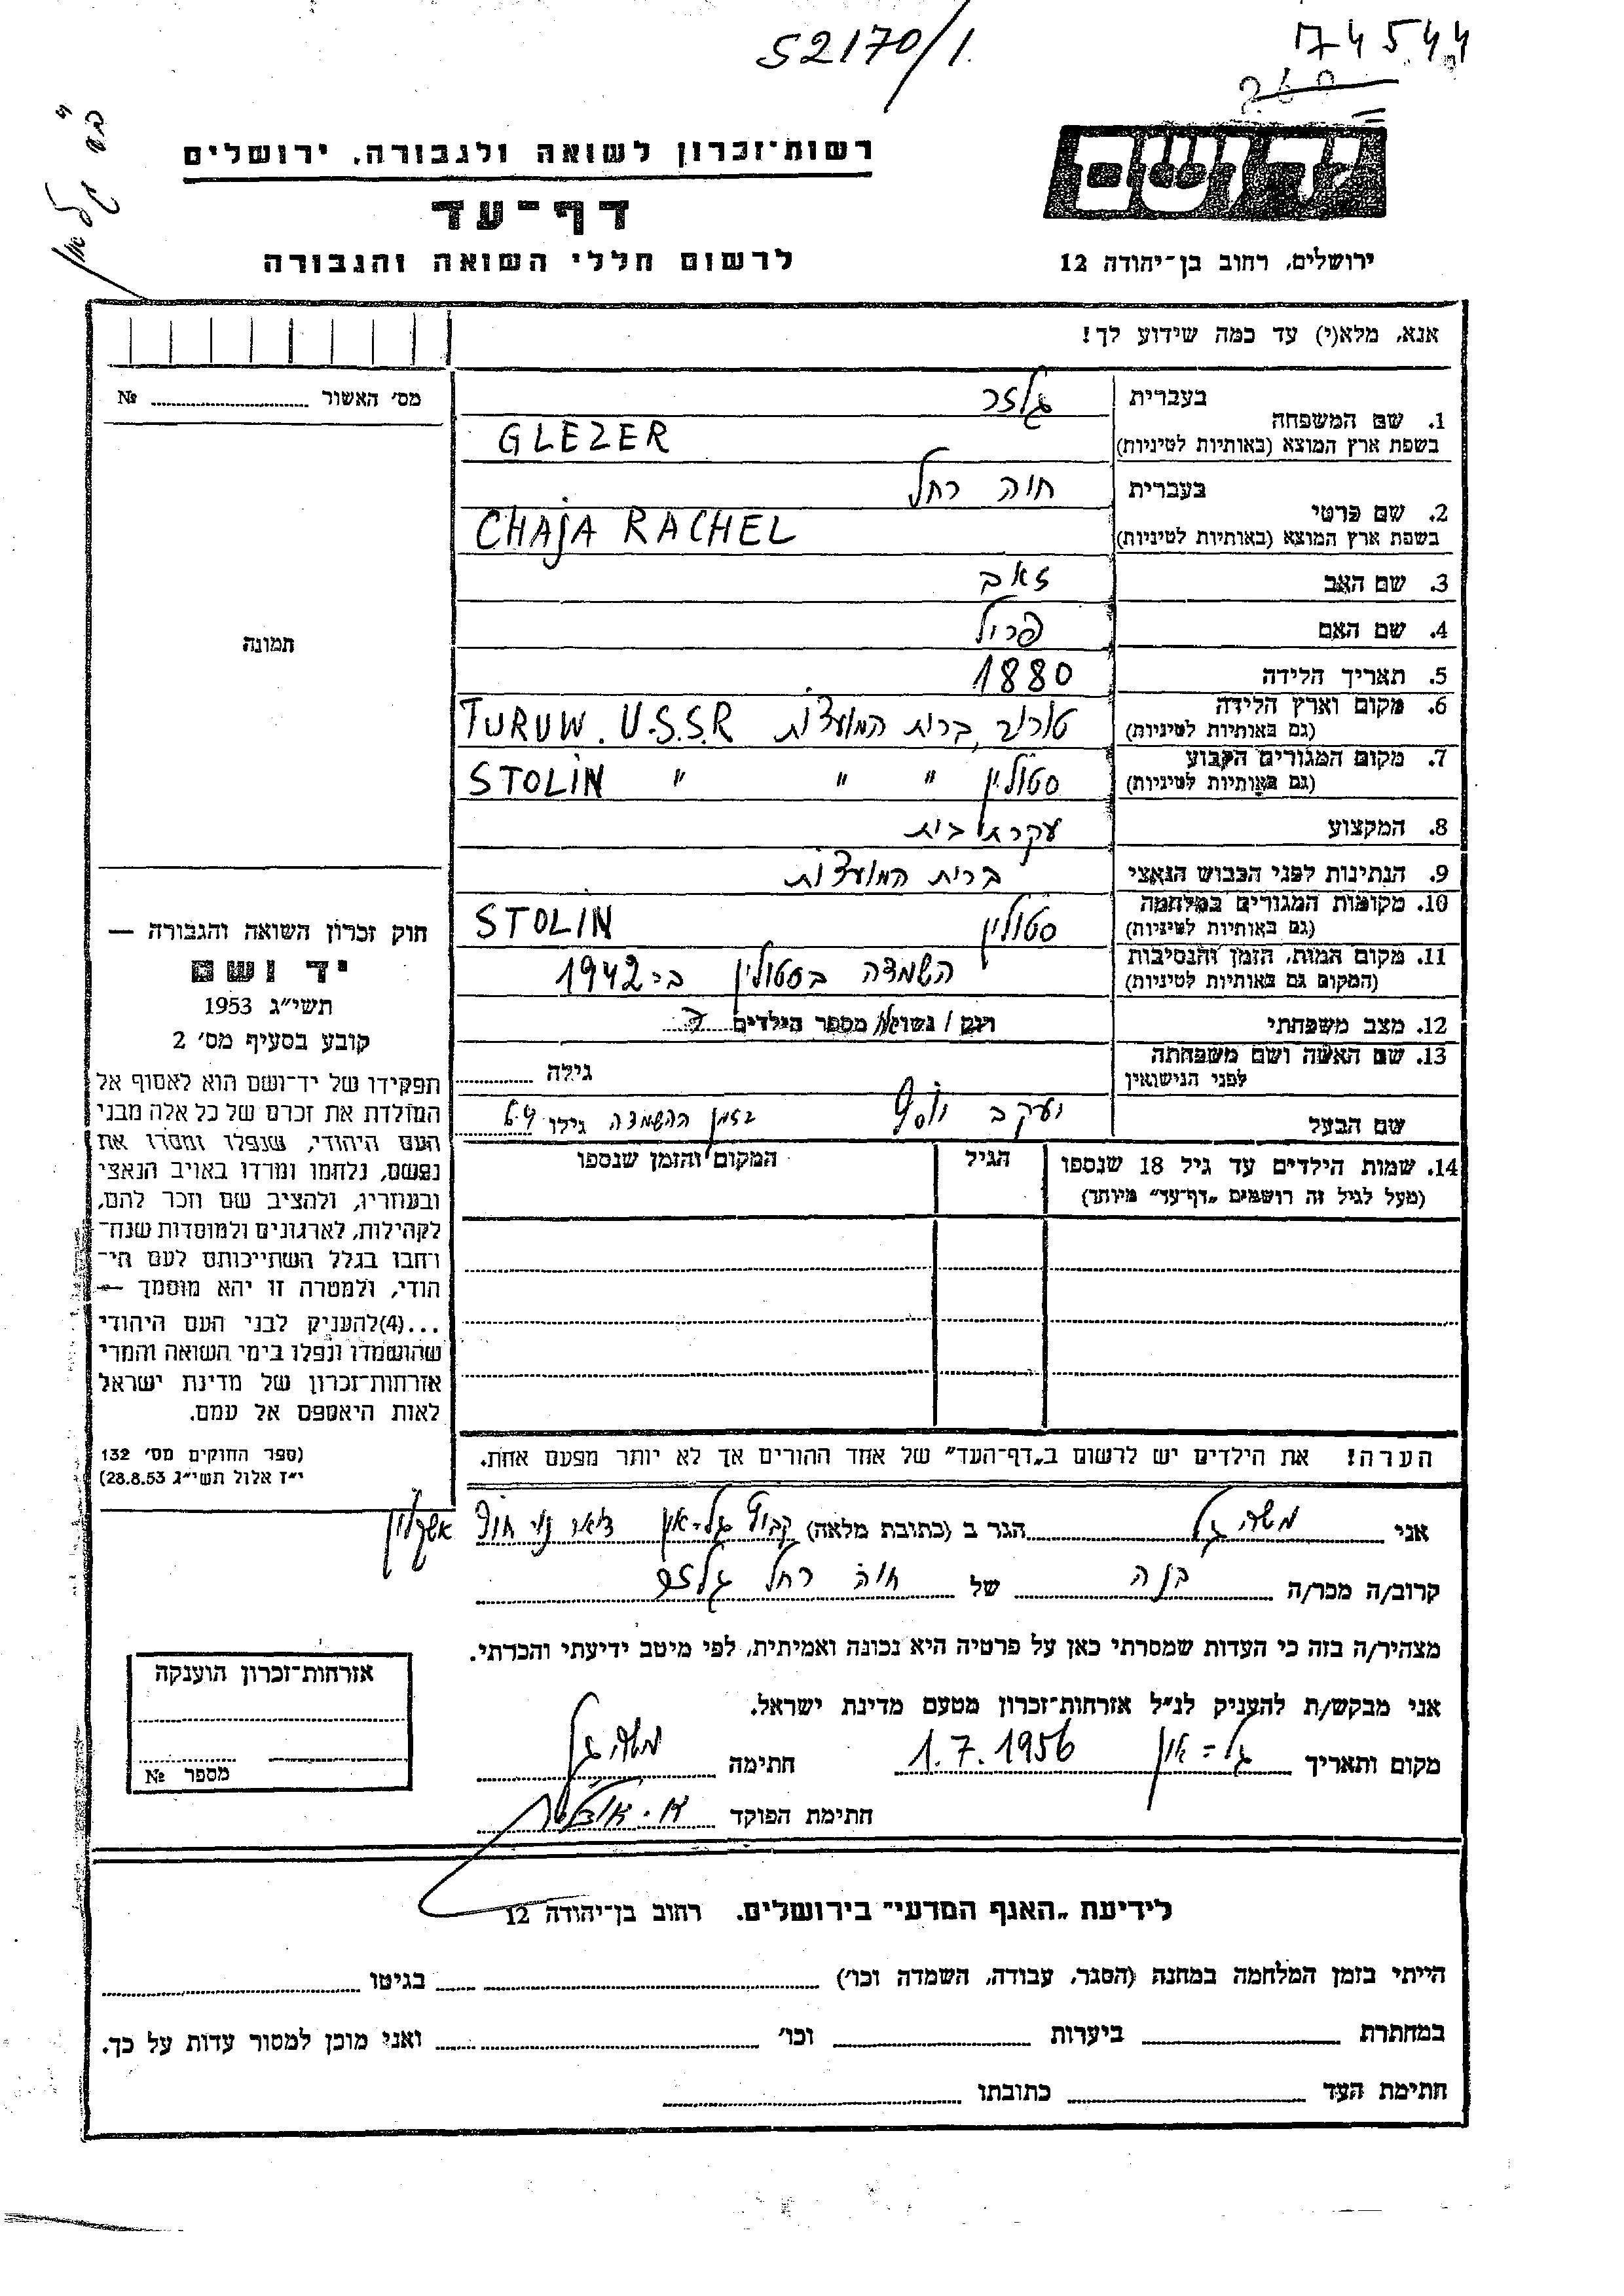 52170/1
74544
260
רשות־זכרון לשואה ולגבורה, ירושלים
דף־עד
לרשום חללי השואה והגבורה
ידושם
ירושלים, רחוב בן־יהודה 12
אנא, מלא(י) עד כמה שידוע לך!
מס׳ האשור № 
תמונה
1. שם המשפחה
בעברית גלזר
בשפת ארץ המוצא (באותיות לטיניות) GLEZER
2. שם פרטי
בעברית חיה רחל
בשפת ארץ המוצא (באותיות לטיניות) CHAJA RACHEL
3. שם האב זאב
4. שם האם פרול
5. תאריך הלידה 1880
6. מקום וארץ הלידה
(גם באותיות לטיניות) טורוב, ברית המועצות TURUW. U.S.S.R
7. מקום המגורים הקבוע
(גם באותיות לטיניות) סטולין " " " STOLIN
8. המקצוע עקרת בית
9. הנתינות לפני הכבוש הנאצי ברית המועצות
10. מקומות המגורים במלחמה
(גם באותיות לטיניות) סטולין STOLIN
11. מקום המות, הזמן והנסיבות
(המקום גם באותיות לטיניות) השמדה בסטולין ב־1942
12. מצב משפחתי רוק / נשוי/אה מספר הילדים
13. שם האשה ושם משפחתה
לפני הנישואין גילה
שם הבעל יעקב יוסף בזמן ההשמדה גילו 64
14. שמות הילדים עד גיל 18 שנספו
(מעל לגיל זה רושמים „דף־עד” מיוחד)
הגיל
המקום והזמן שנספו
הערה! את הילדים יש לרשום ב„דף־העד” של אחד ההורים אך לא יותר מפעם אחת.
חוק זכרון השואה והגבורה —
יד ושם
תשי״ג 1953
קובע בסעיף מס׳ 2
תפקידו של יד־ושם הוא לאסוף אל
המולדת את זכרם של כל אלה מבני
העם היהודי, שנפלו ומסרו את
נפשם, נלחמו ומרדו באויב הנאצי
ובעוזריו, ולהציב שם וזכר להם,
לקהילות, לארגונים ולמוסדות שנח־
רבו בגלל השתייכותם לעם הי־
הודי, ולמטרה זו יהא מוסמך —
...(4)להעניק לבני העם היהודי
שהושמדו ונפלו בימי השואה והמרי
אזרחות־זכרון של מדינת ישראל
לאות היאספם אל עמם.
(ספר החוקים מס׳ 132
י״ז אלול תשי״ג 28.8.53)
אני משה גל הגר ב (כתובת מלאה) קבוץ גל-און דואר נע חוף אשקלון
קרוב/ה מכר/ה בנה של חיה רחל גלזר
מצהיר/ה בזה כי העדות שמסרתי כאן על פרטיה היא נכונה ואמיתית, לפי מיטב ידיעתי והכרתי.
אני מבקש/ת להעניק לנ״ל אזרחות־זכרון מטעם מדינת ישראל.
מקום ותאריך גל-און 1.7.1956 חתימה משה גל
חתימת הפוקד
אזרחות־זכרון הוענקה
מספר №
לידיעת „האגף המדעי” בירושלים, רחוב בן־יהודה 12
הייתי בזמן המלחמה במחנה (הסגר, עבודה, השמדה וכו׳) בגיטו
במחתרת ביערות וכו׳ ואני מוכן למסור עדות על כך.
חתימת העד כתובתו